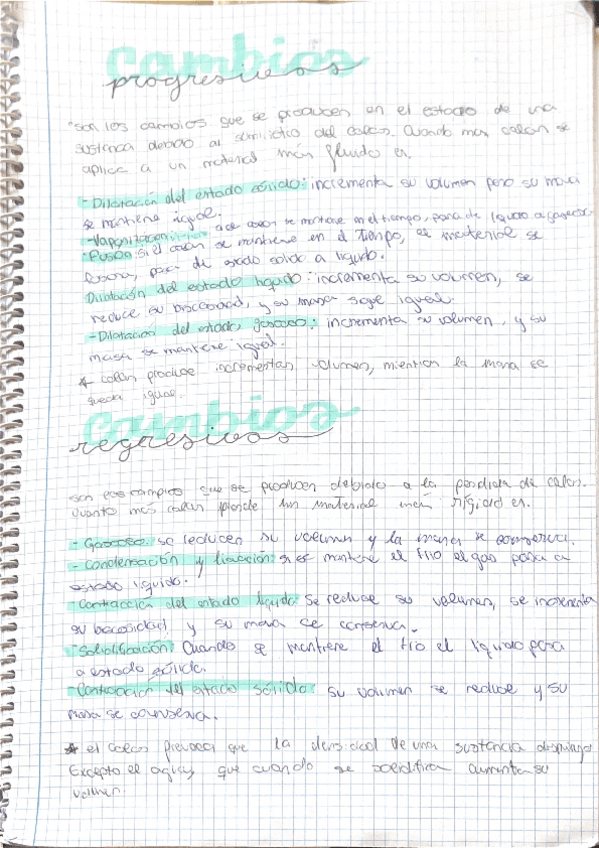 Cambios
progresivos
"son los cambios que se producen en el estado de una
sustancia debido al suministro del calor. Cuando mas calor se
aplica a un material más fluido es.
- Dilatación del estado sólido: incrementa su volumen pero su masa
se mantiene igual.
- Vaporización: calor se mantiene en el tiempo, pasa de líquido a gaseoso.
- Fusión: si el calor se mantiene en el tiempo, el material se
fusiona, pasa de estado solido a líquido.
Dilatación del estado líquido: incrementa su volumen, se
reduce su biscosidad, y su masa sigue igual.
- Dilatación del estado gaseoso: incrementa su volumen, y su
masa se mantiene igual.
* calor produce incrementar volumen, mientras la masa se
queda igual.
Cambios
regresivos
son los cambios que se producen debido a la perdida de calor.
cuanto más calor pierde un material más rígido es.
- Gaseoso: se reducen su volumen y la masa se conserva.
- Condensación y licuación: si se mantiene el frio el gas pasa a
estado liquido.
- Contracción del estado líquido: Se reduce su volumen, se incrementa
su biscosidad y su masa se conserva.
- Solidificación: Cuando se mantiene el frio el liquido pasa
a estado sólido.
- Contracción del estado sólido: su volumen se reduce y su
masa se conserva.
* el calor provoca que la densidad de una sustancia disminuya
Excepto el agua, que cuando se solidifica aumenta su
volumen.